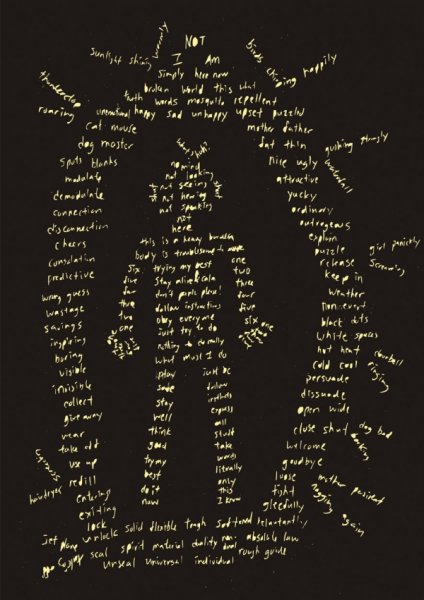 NOT
I Am
Simply here now
broken world this what
truth words mosquito repellent
unemotional happy sad unhappy upset puzzled
sunlight shining
birds chirping happily
thunderclap
roaring
cat mouse
dog master
spuds blanks
modulate
demodulate
connection
disconnection
cheers
consolation
predictive
wrong guess
wastage
savings
inspiring
boring
visible
invisible
collect
give away
wear
take off
use up
refill
entering
exiting
lock
unlock
hairdryer
Jet plane
mother father
fat thin
nice ugly
attractive
yucky
ordinary
outrageous
explain
puzzle
release
keep in
weather
non-event
black dots
white spaces
hot heat
cold cool
persuade
dissuade
open wide
close shut
welcome
goodbye
loose
tight
gleefully
reluctantly
gushing
waterfall
girl panickly
screaming
doorbell
ringing
dog bad
barking
mother persident
nagging
again
not looking
not seeing
not hearing
not speaking
not
here
this is a heavy burden
body is troublesome to move
trying my best
stay alive
don't panic please!
follow instructions
obey everyone
just try to do
nothing to do really
what must I do
six
five
four
three
two
one
one
two
three
four
five
six
play
safe
stay
well
think
good
try my
best
do it
now
just be
follow
instincts
express
all
stuff
take
words
literally
only
this
I know
solid flexible tough softened
seal spirit material duality non dual absolute law
unseal universal individual rough guide